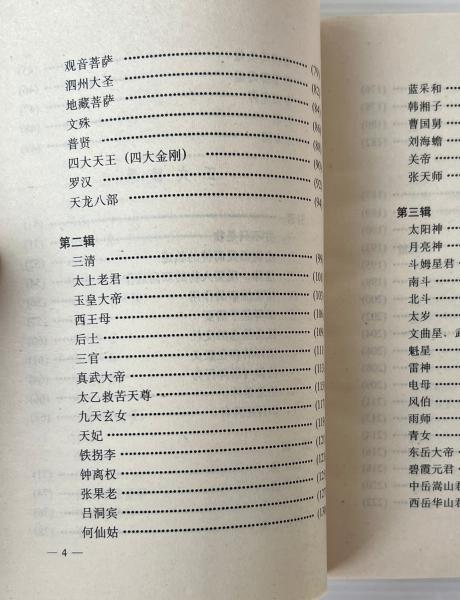 观音菩萨 (79)
泗州大圣 (82)
地藏菩萨 (84)
文殊 (86)
普贤 (88)
四大天王（四大金刚） (90)
罗汉 (92)
天龙八部 (94)
第二辑
三清 (99)
太上老君 (101)
玉皇大帝 (103)
西王母 (106)
后土 (109)
三官 (111)
真武大帝 (113)
太乙救苦天尊 (115)
九天玄女 (117)
天妃 (119)
铁拐李
钟离权
张果老
吕洞宾
何仙姑
— 4 —
蓝采和
韩湘子
曹国舅
刘海蟾
关帝
张天师
第三辑
太阳神
月亮神
斗姆星君
南斗
北斗
太岁
文曲星、
魁星
雷神
电母
风伯
雨师
青女
东岳大帝
碧霞元君
中岳嵩山君
西岳华山君